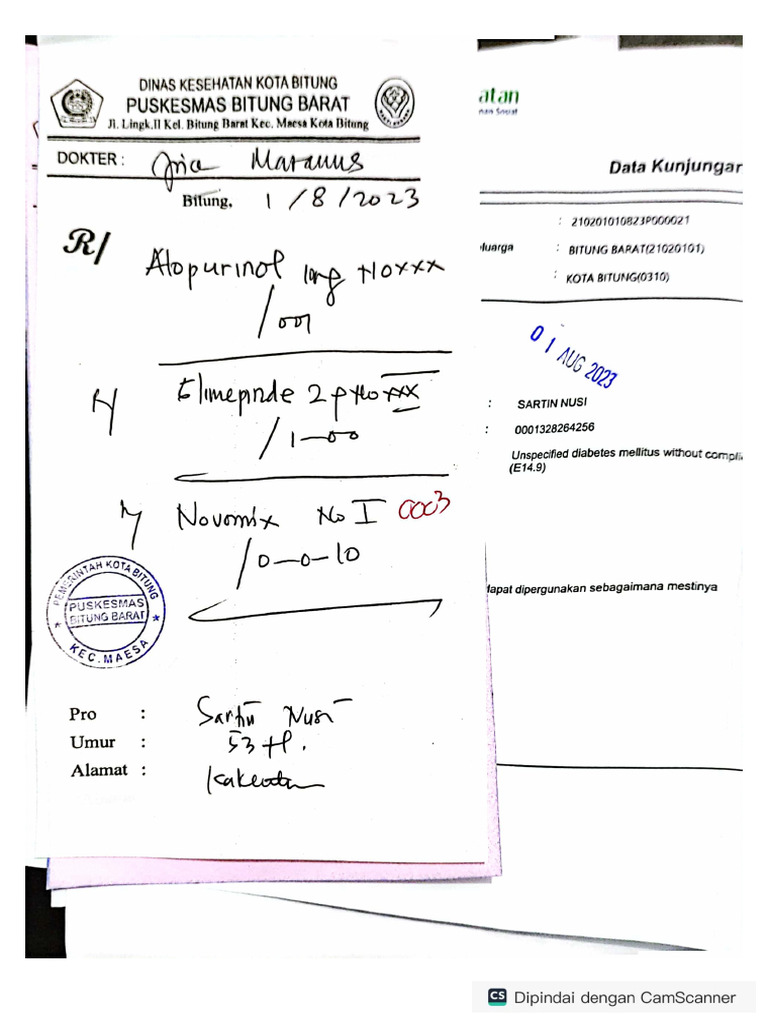 DINAS KESEHATAN KOTA BITUNG
PUSKESMAS BITUNG BARAT
Jl. Lingk.II Kel. Bitung Barat Kec. Maesa Kota Bitung
DOKTER :
Bitung, 1/8/2023
R/
Alopurinol
/001
2
/1-00
Novomix No I 0003
/0-0-10
PEMERINTAH KOTA BITUNG
PUSKESMAS
BITUNG BARAT
KEC. MAESA
Pro : Sartin Nusi
Umur : 53 th.
Alamat :
atan
Data Kunjungan
: 210201010823P000021
eluarga : BITUNG BARAT(21020101)
: KOTA BITUNG(0310)
01 AUG 2023
: SARTIN NUSI
: 0001328264256
Unspecified diabetes mellitus without compli
(E14.9)
dapat dipergunakan sebagaimana mestinya
CS Dipindai dengan CamScanner